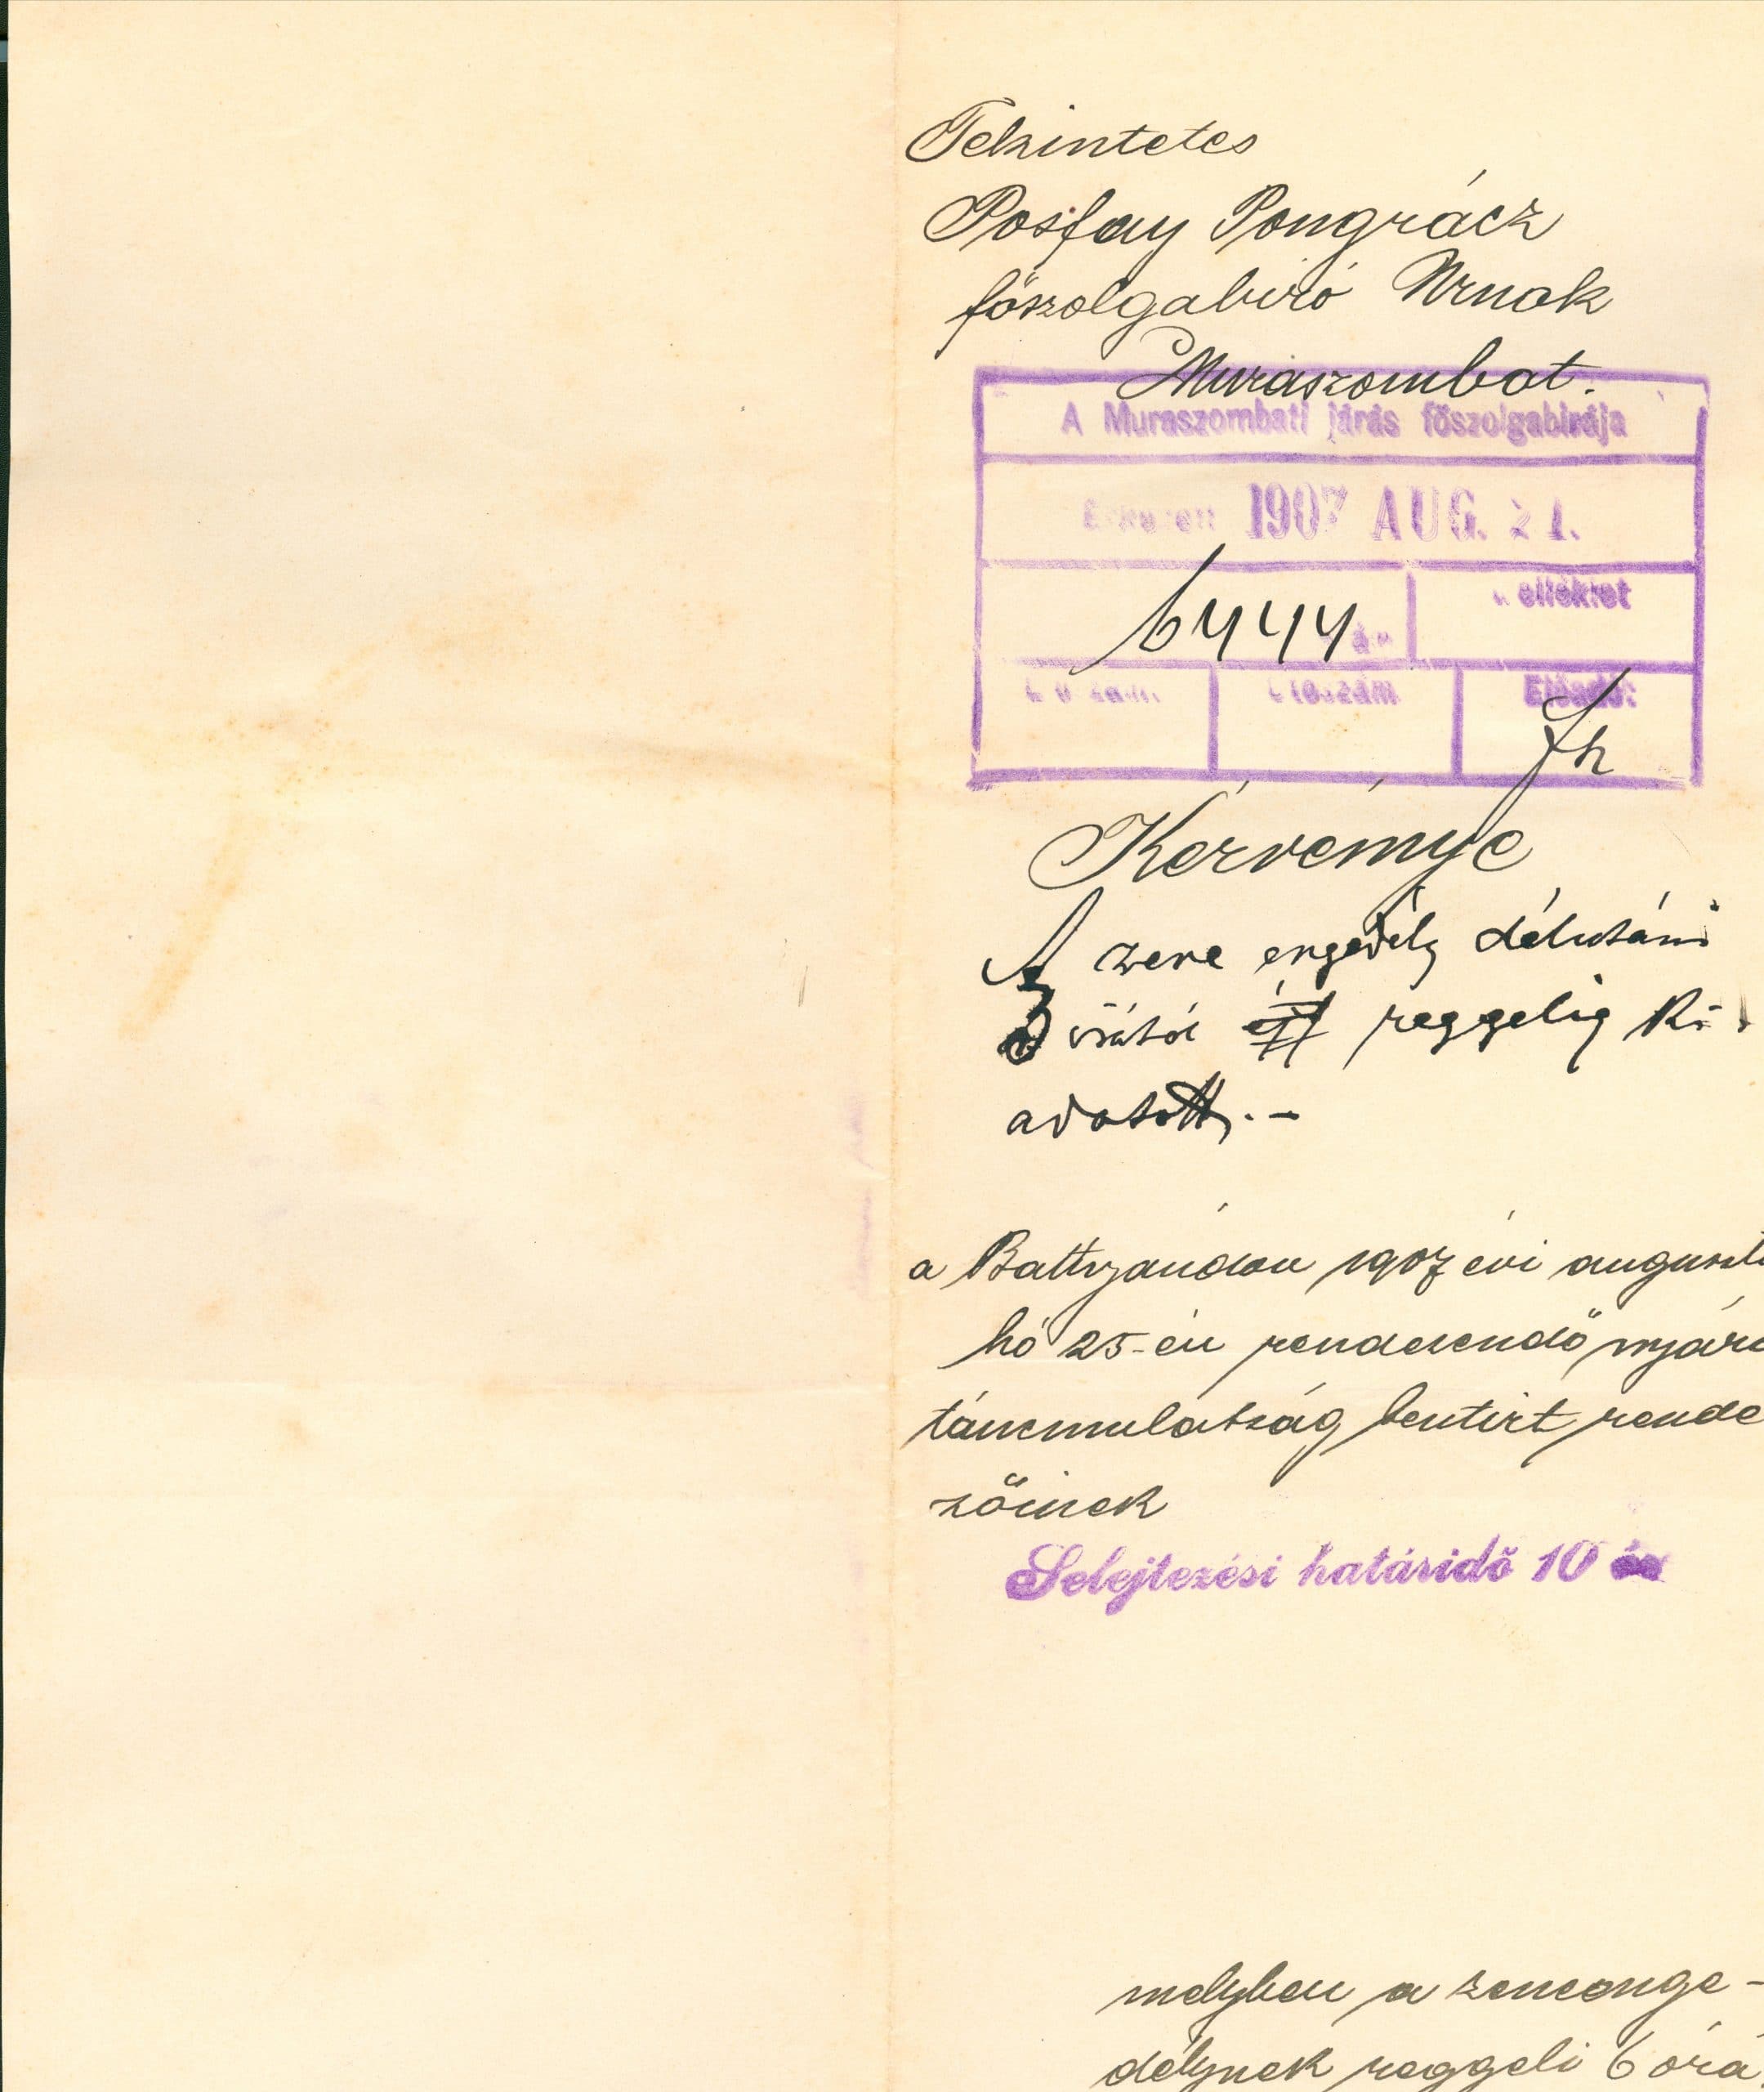 Tekintetes
Posfay Pongrácz
főszolgabiró Urnak
Muraszombat.
A Muraszombati járás főszolgabirája
1907 AUG. 21.
6444
elléklet
Előadó:
Kérvénye
A zene engedély délutáni
3 órától reggelig ki-
adatott. -
a Battyándon 1907 évi auguszt
hó 25-én rendezendő nyári
táncmulatság bentirt rende
zőinek
Selejtezési határidő 10 év
melyben a zeneenge-
délynek reggeli 6 órá